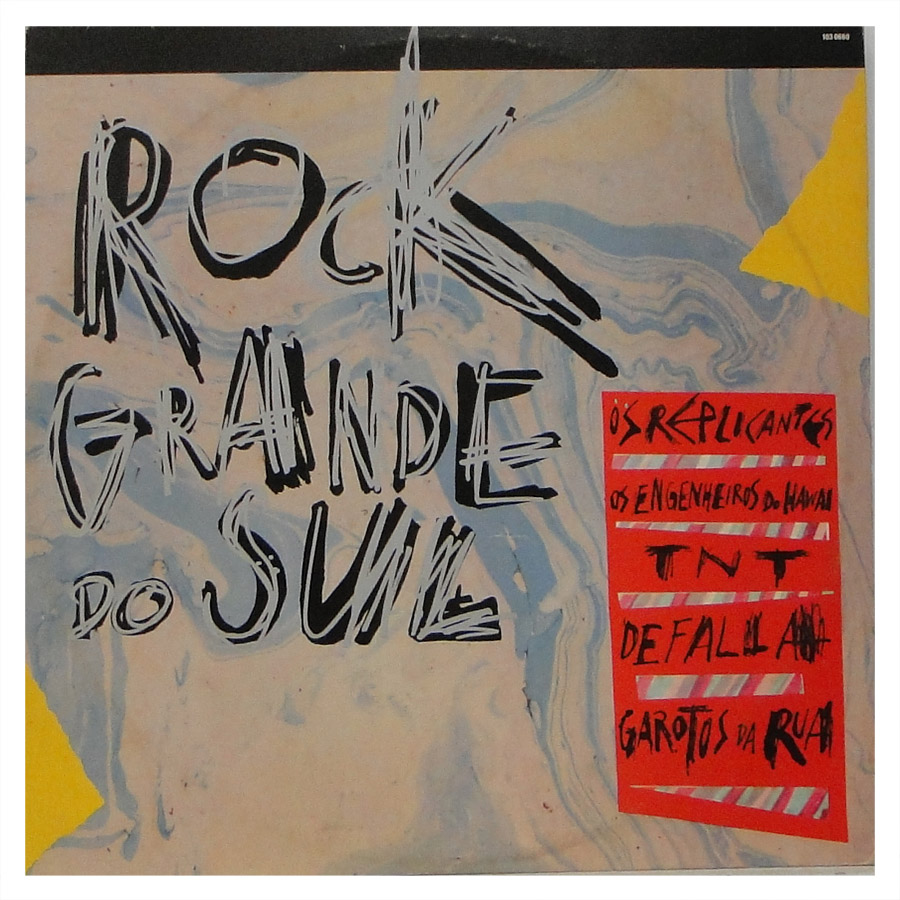 103 0660
ROCK
GRANDE
DO SUL
OS REPLICANTES
OS ENGENHEIROS DO HAWAII
TNT
DEFALLA
GAROTOS DA RUA